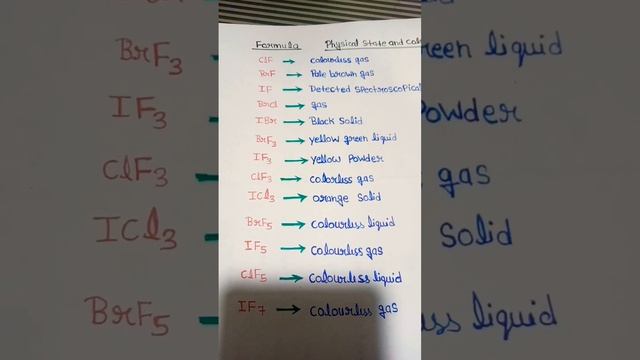 Formula Physical State and Col
ClF → colourless gas
BrF → Pale brown gas
IF → Detected Spectroscopical
BrCl → gas
IBr → Black Solid
BrF3 → yellow green liquid
IF3 → yellow Powder
ClF3 → colorless gas
ICl3 → orange Solid
BrF5 → colourless liquid
IF5 → colourless gas
ClF5 → colourless liquid
IF7 → colourless gas
BrF3
IF3
ClF3
ICl3
BrF5
reen liquid
owder
gas
Solid
ss liquid